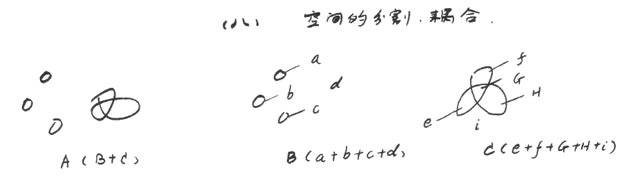 (八) 空间的分割、耦合.
a
b
c
d
f
G
H
e
i
A (B+C)
B (a+b+c+d)
C (e+f+G+H+i)